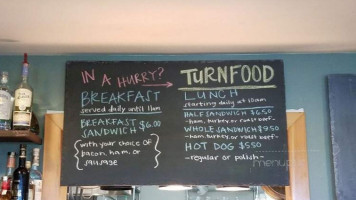 IN A HURRY?
BREAKFAST
served daily until 11am
BREAKFAST
SANDWICH $6.00
with your choice of
bacon, ham, or
sausage
TURNFOOD
LUNCH
starting daily at 10am
HALF SANDWICH $6.50
-ham, turkey, or roast beef-
WHOLE SANDWICH $9.50
-ham, turkey, or roast beef-
HOT DOG $5.50
-regular or polish-